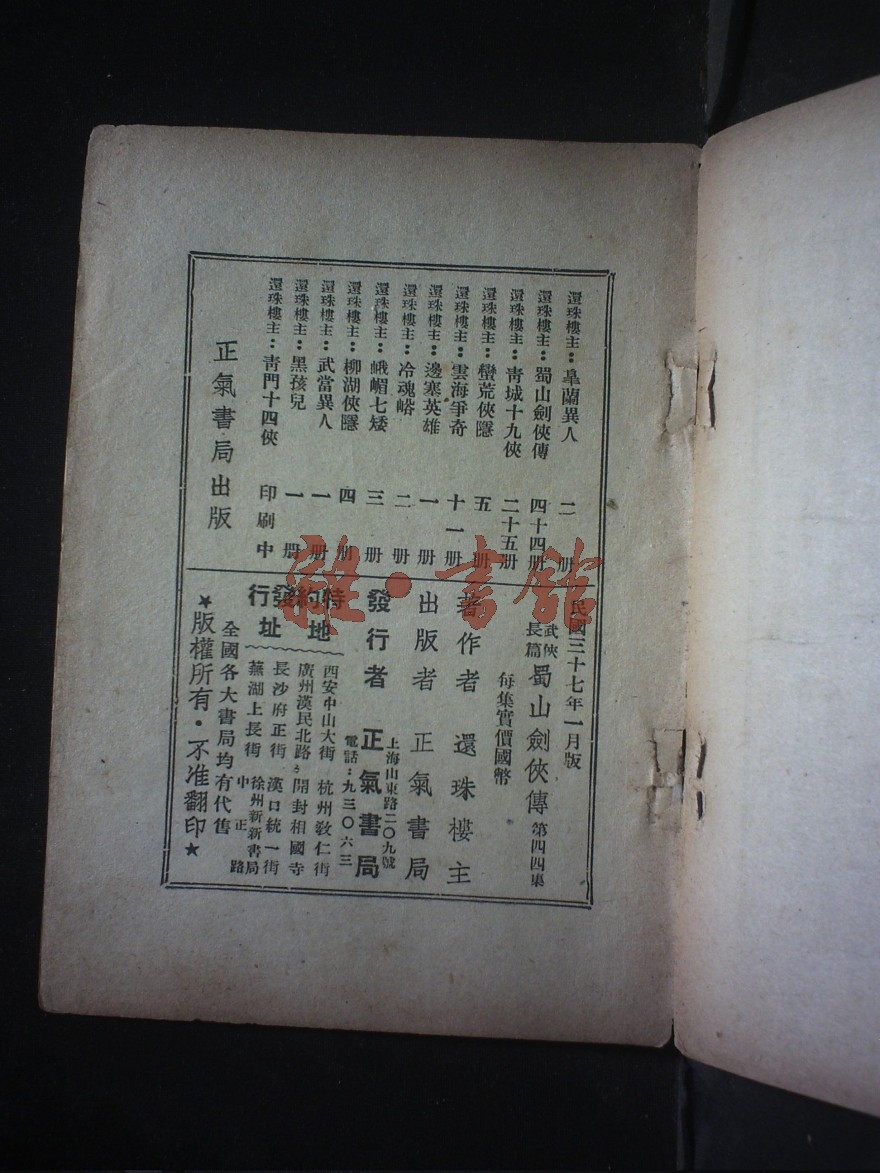 還珠樓主：臯蘭異人 二册
還珠樓主：蜀山劍俠傳 四十四册
還珠樓主：青城十九俠 二十五册
還珠樓主：蠻荒俠隱 五册
還珠樓主：雲海爭奇 十一册
還珠樓主：邊塞英雄 一册
還珠樓主：冷魂峪 二册
還珠樓主：峨嵋七矮 三册
還珠樓主：柳湖俠隱 四册
還珠樓主：武當異人 一册
還珠樓主：黑孩兒 一册
還珠樓主：青門十四俠 印刷中
正氣書局出版
民國三十七年一月版
武俠長篇 蜀山劍俠傳 第四四集
每集實價國幣
著作者 還珠樓主
出版者 正氣書局
發行者 正氣書局
上海山東路二〇九號
電話：九三〇六三
特約發行
地址
西安中山大街 杭州敎仁街
廣州漢民北路 開封相國寺
長沙府正街 漢口統一街
蕪湖上長街 徐州新新書局
中正路
全國各大書局均有代售
★版權所有·不准翻印★
雜·書館